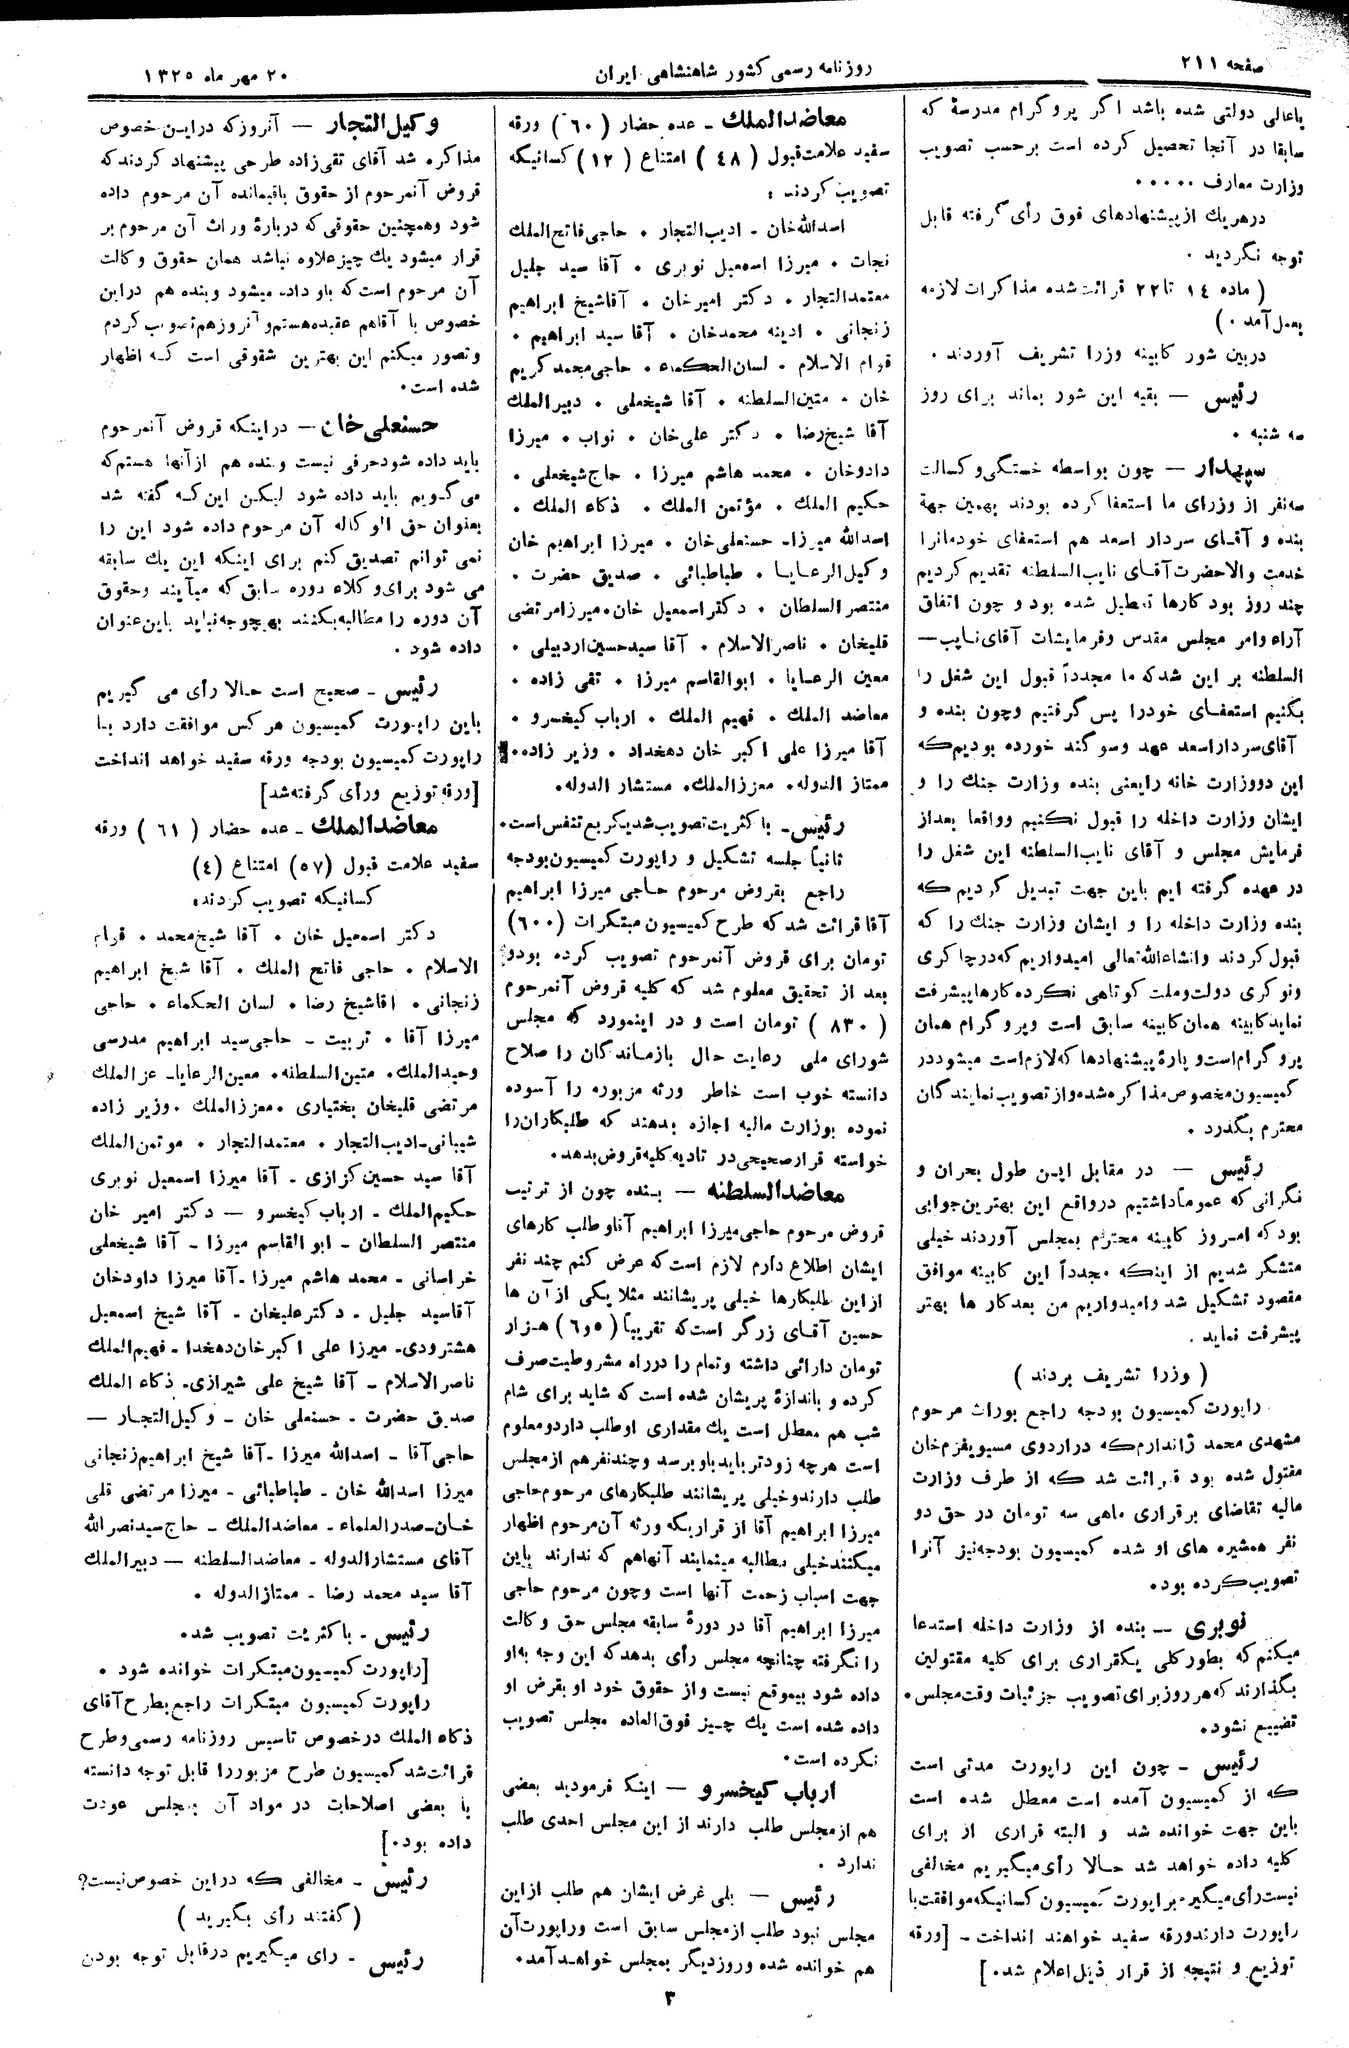 صفحه ۲۱۱
روزنامه رسمی کشور شاهنشاهی ایران
۲۰ مهر ماه ۱۳۲۵
یاعالی دولتی شده باشد اگر پروگرام مدرسهٔ که
سابقا در آنجا تحصیل کرده است برحسب تصویب
وزارت معارف ۰۰۰۰۰
درهریك از پیشنهادهای فوق رأی گرفته قابل
توجه نگردید .
( ماده ۱٤ تا ۲۲ قرائت شده مذاکرات لازمه
بعمل آمد . )
دربین شور کابینه وزرا تشریف آوردند .
رئیس — بقیه این شور بماند برای روز
سه شنبه .
سپهدار — چون بواسطه خستگی و کسالت
سه نفر از وزرای ما استعفا کرده بودند بهمین جهة
بنده و آقای سردار اسعد هم استعفای خودمانرا
خدمت والاحضرت آقای نایب السلطنه تقدیم کردیم
چند روز بود کارها تعطیل شده بود و چون اتفاق
آراء وامر مجلس مقدس وفرمایشات آقای نایب —
السلطنه بر این شد که ما مجدداً قبول این شغل را
بکنیم استعفای خودرا پس گرفتیم وچون بنده و
آقای سردار اسعد عهد وسوگند خورده بودیم که
این دووزارت خانه رایعنی بنده وزارت جنك را و
ایشان وزارت داخله را قبول نکنیم وواقعا بعداز
فرمایش مجلس و آقای نایب السلطنه این شغل را
در عهده گرفته ایم باین جهت تبدیل کردیم که
بنده وزارت داخله را و ایشان وزارت جنك را که
قبول کردند وانشاءالله تعالی امیدواریم که درچاکری
ونوکری دولت وملت کوتاهی نکرده کارها پیشرفت
نماید کابینه همان کابینه سابق است وپروگرام همان
پروگرام است وپارهٔ پیشنهادها که لازم است میشود در
کمیسیون مخصوص مذاکره شده واز تصویب نمایندگان
محترم بگذرد .
رئیس — در مقابل این طول بحران و
نگرانی که عموماً داشتیم درواقع این بهترین جوابی
بود که امروز کابینه محترم بمجلس آوردند خیلی
متشکر شدیم از اینکه مجدداً این کابینه موافق
مقصود تشکیل شد وامیدواریم من بعد کار ها بهتر
پیشرفت نماید .
( وزرا تشریف بردند )
راپورت کمیسیون بودجه راجع بوراث مرحوم
مشهدی محمد ژاندارم که دراردوی مسیویفرم خان
مقتول شده بود قرائت شد که از طرف وزارت
مالیه تقاضای برقراری ماهی سه تومان در حق دو
نفر همشیره های او شده کمیسیون بودجه نیز آنرا
تصویب کرده بود.
نوبری — بنده از وزارت داخله استدعا
میکنم که بطورکلی یکقراری برای کلیه مقتولین
بگذارند که هر روز برای تصویب جزئیات وقت مجلس .
تضییع نشود.
رئیس – چون این راپورت مدتی است
که از کمیسیون آمده است معطل شده است
باین جهت خوانده شد و البته قراری از برای
کلیه داده خواهد شد حالا رأی میگیریم مخالفی
نیست رأی میگیریم براپورت کمیسیون کسانیکه موافقت با
راپورت دارند ورقه سفید خواهند انداخت – [ورقه
توزیع و نتیجه از قرار ذیل اعلام شد.]
معاضدالملك – عده حضار (٦۰) ورقه
سفید علامت قبول (٤۸) امتناع (۱۲) کسانیکه
تصویب کردند :
اسدالله خان – ادیب التجار . حاجی فاتح الملك
نجات . میرزا اسمعیل نوبری . آقا سید جلیل
معتمدالتجار . دکتر امیرخان . آقاشیخ ابراهیم
زنجانی . ادینه محمدخان . آقا سید ابراهیم .
قوام الاسلام . لسان الحکماء . حاجی محمد کریم
خان . متین السلطنه . آقا شیخعلی . دبیرالملك
آقا شیخ رضا . دکتر علی خان . نواب . میرزا
دادوخان . محمد هاشم میرزا . حاج شیخعلی .
حکیم الملك . مؤتمن الملك . ذکاء الملك .
اسدالله میرزا– حسنعلی خان . میرزا ابراهیم خان
وکیل الرعایا . طباطبائی . صدیق حضرت .
منتصر السلطان . دکتر اسمعیل خان. میرزا مرتضی
قلیخان . ناصر الاسلام . آقا سید حسین اردبیلی .
معین الرعایا . ابوالقاسم میرزا . تقی زاده .
معاضد الملك . فهیم الملك . ارباب کیخسرو .
آقا میرزا علی اکبر خان دهخداد . وزیر زاده.
ممتاز الدوله. معزز الملك. مستشار الدوله.
رئیس– با کثریت تصویب شدیکربع تنفس است.
ثانیاً جلسه تشکیل و راپورت کمیسیون بودجه
راجع بقروض مرحوم حاجی میرزا ابراهیم
آقا قرائت شد که طرح کمیسیون مبتکرات (٦۰۰)
تومان برای قروض آنمرحوم تصویب کرده بودو
بعد از تحقیق معلوم شد که کلیه قروض آنمرحوم
(۸۳۰) تومان است و در اینمورد که مجلس
شورای ملی رعایت حال بازماندگان را صلاح
دانسته خوب است خاطر ورثه مزبوره را آسوده
نموده بوزارت مالیه اجازه بدهند که طلبکاران را
خواسته قرار صحیحی در تادیه کلیه قروض بدهد.
معاضدالسلطنه — بنده چون از ترتیب
قروض مرحوم حاجی میرزا ابراهیم آقا و طلب کارهای
ایشان اطلاع دارم لازم است که عرض کنم چند نفر
از این طلبکارها خیلی پریشانند مثلا یکی از آن ها
حسین آقای زرگر است که تقریباً (٥و٦) هزار
تومان دارائی داشته وتمام را درراه مشروطیت صرف
کرده و باندازهٔ پریشان شده است که شاید برای شام
شب هم معطل است یك مقداری او طلب دارد و معلوم
است هرچه زودتر باید باو برسد و چند نفر هم از مجلس
طلب دارند و خیلی پریشانند طلبکارهای مرحوم حاجی
میرزا ابراهیم آقا از قراریکه ورثه آن مرحوم اظهار
میکنند خیلی مطالبه مینمایند آنهاهم که ندارند باین
جهت اسباب زحمت آنها است وچون مرحوم حاجی
میرزا ابراهیم آقا در دورهٔ سابقه مجلس حق وکالت
را نگرفته چنانچه مجلس رأی بدهد که این وجه به او
داده شود بیموقع نیست واز حقوق خود او بقرض او
داده شده است یك چیز فوق العاده مجلس تصویب
نکرده است.
ارباب کیخسرو — اینکه فرمودید بعضی
هم از مجلس طلب دارند از این مجلس احدی طلب
ندارد .
رئیس — بلی غرض ایشان هم طلب از این
مجلس نبود طلب از مجلس سابق است وراپورت آن
هم خوانده شده وروز دیگر بمجلس خواهد آمد.
وکیل التجار — آنروز که دراین خصوص
مذاکره شد آقای تقی زاده طرحی پیشنهاد کردند که
قروض آنمرحوم از حقوق باقیمانده آن مرحوم داده
شود وهمچنین حقوقی که دربارهٔ وراث آن مرحوم بر
قرار میشود یك چیز علاوه نباشد همان حقوق وکالت
آن مرحوم است که باو داده میشود وبنده هم دراین
خصوص با آقاهم عقیده هستم و آنروز هم تصویب کردم
وتصور میکنم این بهترین شقوقی است که اظهار
شده است.
حسنعلی خان — دراینکه قروض آنمرحوم
باید داده شود حرفی نیست وبنده هم از آنها هستم که
می گویم باید داده شود لیکن این که گفته شد
بعنوان حق الوکاله آن مرحوم داده شود این را
نمی توانم تصدیق کنم برای اینکه این یك سابقه
می شود برای وکلاء دوره سابق که میآیند وحقوق
آن دوره را مطالبه بکنند بهیچوجه نباید باین عنوان
داده شود .
رئیس – صحیح است حالا رأی می گیریم
باین راپورت کمیسیون هر کس موافقت دارد با
راپورت کمیسیون بودجه ورقه سفید خواهد انداخت
[ورقه توزیع ورأی گرفته شد]
معاضدالملك – عده حضار (٦۱) ورقه
سفید علامت قبول (٥۷) امتناع (٤)
کسانیکه تصویب کردند.
دکتر اسمعیل خان . آقا شیخ محمد . قوام
الاسلام . حاجی فاتح الملك . آقا شیخ ابراهیم
زنجانی . اقاشیخ رضا . لسان الحکماء . حاجی
میرزا آقا . تربیت – حاجی سید ابراهیم مدرسی
وحیدالملك. متین السلطنه. معین الرعایا– عز الملك
مرتضی قلیخان بختیاری .معزز الملك .وزیر زاده
شیبانی–ادیب التجار . معتمدالتجار . موتمن الملك
آقا سید حسین کزازی – آقا میرزا اسمعیل نوبری
حکیم الملك – ارباب کیخسرو — دکتر امیر خان
منتصر السلطان – ابو القاسم میرزا – آقا شیخعلی
خراسانی – محمد هاشم میرزا –آقا میرزا داودخان
آقاسید جلیل – دکتر علیخان – آقا شیخ اسمعیل
هشترودی– میرزا علی اکبرخان دهخدا – فهیم الملك
ناصر الاسلام – آقا شیخ علی شیرازی– ذکاء الملك
صدیق حضرت – حسنعلی خان – وکیل التجار —
حاجی آقا – اسدالله میرزا –آقا شیخ ابراهیم زنجانی
میرزا اسدالله خان – طباطبائی – میرزا مرتضی قلی
خان–صدرالعلماء – معاضدالملك – حاج سیدنصرالله
آقای مستشارالدوله – معاضدالسلطنه — دبیر الملك
آقا سید محمد رضا – ممتازالدوله .
رئیس – باکثریت تصویب شد.
[راپورت کمیسیون مبتکرات خوانده شود .
راپورت کمیسیون مبتکرات راجع بطرح آقای
ذکاء الملك درخصوص تاسیس روزنامه رسمی وطرح
قرائت شد کمیسیون طرح مزبور را قابل توجه دانسته
با بعضی اصلاحات در مواد آن بمجلس عودت
داده بود.]
رئیس – مخالفی که دراین خصوص نیست؟
(گفتند رأی بگیرید )
رئیس – رای میگیریم درقابل توجه بودن
۳